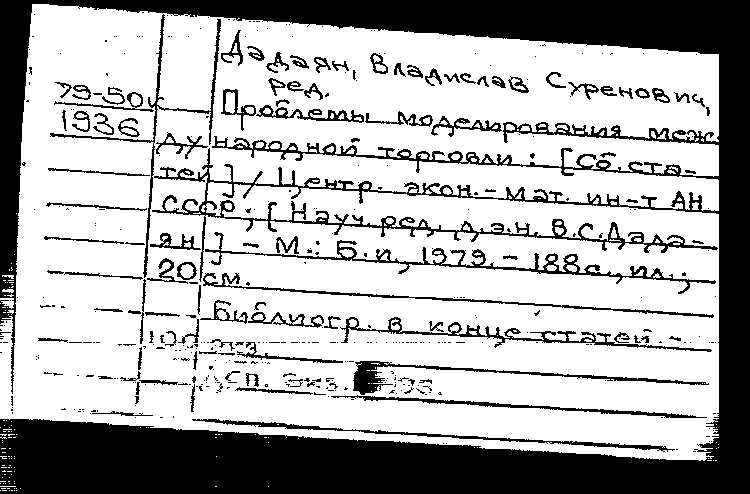 Дадаян, Владислав Суренович,
ред.
79-50к
Проблемы моделирования меж-
1936
дународной торговли : [Сб. ста-
тей] / Центр. экон.-мат. ин-т АН
СССР ; [Науч. ред. д.э.н. В.С. Дада-
ян] - М. : Б.и., 1979. - 188 с., ил. ;
20 см.
Библиогр. в конце статей. -
100 экз.
экз.